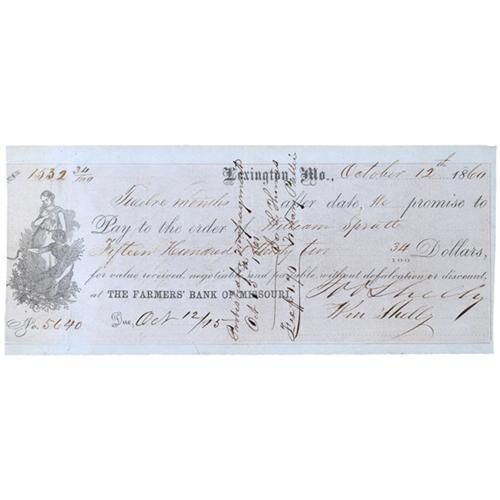 1532 34/100 Lexington, Mo., October 12th 1860
Twelve months after date, We promise to
Pay to the order of William Spratt
Fifteen Hundred thirty two 34/100 Dollars,
for value received, negotiable and payable, without defalcation or discount,
at THE FARMERS' BANK OF MISSOURI,
Wm Shelly
No. 5640 Due, Oct 12/15
Protested for nonpayment
Oct 15th 1861